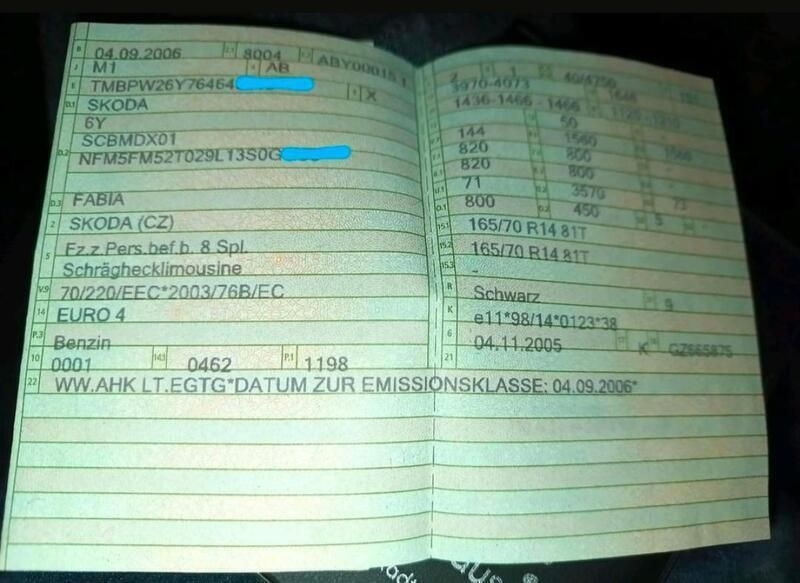 B 04.09.2006 2.1 8004 2.2 ABY00015 1
J M1 4 AB
E TMBPW26Y76464 3 X
D.1 SKODA
6Y
SCBMDX01
D.2 NFM5FM52T029L13S0G
D.3 FABIA
2 SKODA (CZ)
5 Fz.z.Pers.bef.b. 8 Spl.
Schräghecklimousine
V.9 70/220/EEC*2003/76B/EC
14 EURO 4
P.3 Benzin
10 0001 14.1 0462 P.1 1198
22 WW.AHK LT.EGTG*DATUM ZUR EMISSIONSKLASSE: 04.09.2006*
2 1 40/4750
3970-4073 1646 151
1436-1466 - 1466
50
144 1560 1560
820 800
820 800
71 3570 73
800 450 5
15.1 165/70 R14 81T
15.2 165/70 R14 81T
15.3 -
R Schwarz 9
K e11*98/14*0123*38
6 04.11.2005 17 K GZ665875
21